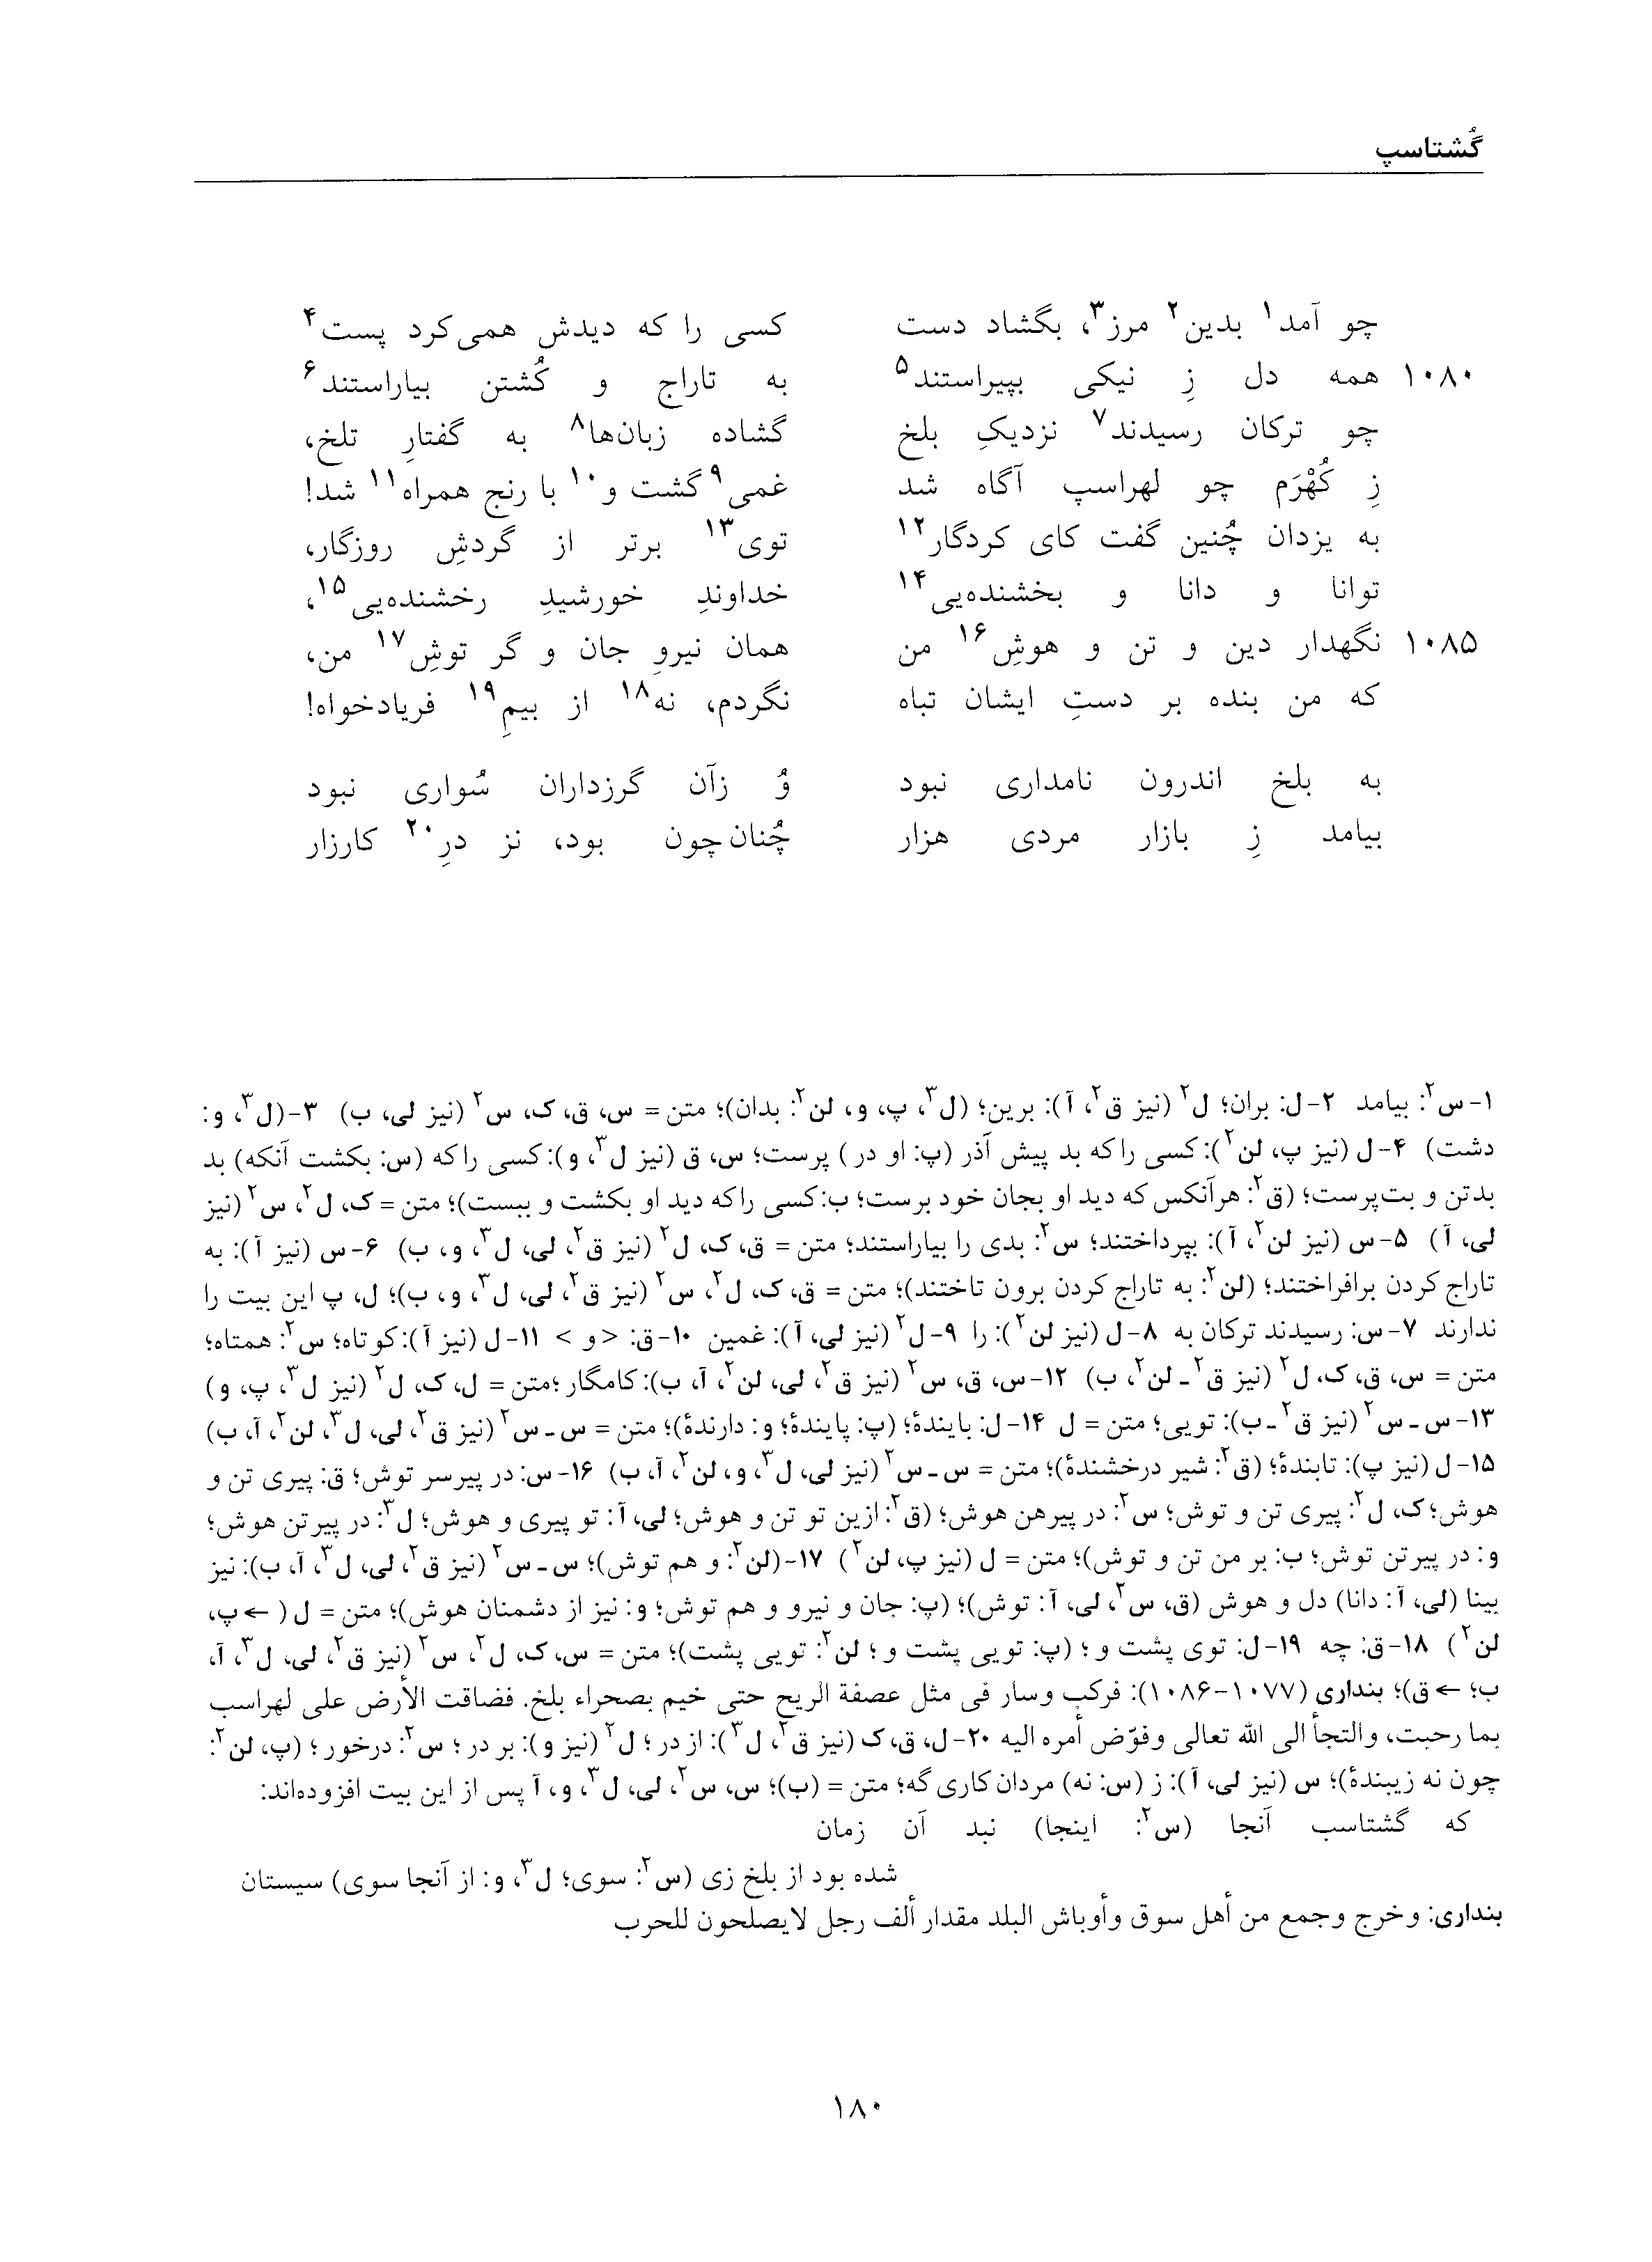 گُشتاسپ
چو آمد۱ بدین۲ مرز۳، بگشاد دست کسی را که دیدش همی‌کرد پست۴
۱۰۸۰ همه دل زِ نیکی بپیراستند۵ به تاراج و کُشتن بیاراستند۶
چو ترکان رسیدند۷ نزدیکِ بلخ گشاده زبان‌ها۸ به گفتارِ تلخ،
زِ کُهْرَم چو لهراسپ آگاه شد غمی۹ گشت و۱۰ با رنج همراه۱۱ شد!
به یزدان چُنین گفت کای کردگار۱۲ توی۱۳ برتر از گردشِ روزگار،
توانا و دانا و بخشنده‌یی۱۴ خداوندِ خورشیدِ رخشنده‌یی۱۵،
۱۰۸۵ نگهدار دین و تن و هوشِ۱۶ من همان نیروِ جان و گر توشِ۱۷ من،
که من بنده بر دستِ ایشان تباه نگردم، نه۱۸ از بیمِ۱۹ فریادخواه!
به بلخ اندرون نامداری نبود وُ زآن گرزداران سُواری نبود
بیامد زِ بازار مردی هزار چُنان‌چون بود، نز درِ۲۰ کارزار
۱-س۲: بیامد ۲-ل: بران؛ ل۲ (نیز ق۲، آ): برین؛ (ل۳، پ، و، لن۲: بدان)؛ متن = س، ق، ک، س۲ (نیز لی، ب) ۳-(ل۳، و:
دشت) ۴-ل (نیز پ، لن۲): کسی را که بد پیش آذر (پ: او در) پرست؛ س، ق (نیز ل۳، و): کسی را که (س: بکشت آنکه) بد
بدتن و بت‌پرست؛ (ق۲: هرآنکس که دید او بجان خود برست؛ ب: کسی را که دید او بکشت و ببست)؛ متن = ک، ل۲، س۲ (نیز
لی، آ) ۵-س (نیز لن۲، آ): بپرداختند؛ س۲: بدی را بیاراستند؛ متن = ق، ک، ل۲ (نیز ق۲، لی، ل۳، و، ب) ۶-س (نیز آ): به
تاراج کردن برافراختند؛ (لن۲: به تاراج کردن برون تاختند)؛ متن = ق، ک، ل۲، س۲ (نیز ق۲، لی، ل۳، و، ب)؛ ل، پ این بیت را
ندارند ۷-س: رسیدند ترکان به ۸-ل (نیز لن۲): را ۹-ل۲ (نیز لی، آ): غمین ۱۰-ق: <و> ۱۱-ل (نیز آ): کوتاه؛ س۲: همتاه؛
متن = س، ق، ک، ل۲ (نیز ق۲ ـ لن۲، ب) ۱۲-س، ق، س۲ (نیز ق۲، لی، لن۲، آ، ب): کامگار؛ متن = ل، ک، ل۲ (نیز ل۳، پ، و)
۱۳-س ـ س۲ (نیز ق۲ ـ ب): تویی؛ متن = ل ۱۴-ل: باینده‌ٔ؛ (پ: پاینده‌ٔ؛ و: دارنده‌ٔ)؛ متن = س ـ س۲ (نیز ق۲، لی، ل۳، لن۲، آ، ب)
۱۵-ل (نیز پ): تابنده‌ٔ؛ (ق۲: شیر درخشنده‌ٔ)؛ متن = س ـ س۲ (نیز لی، ل۳، و، لن۲، آ، ب) ۱۶-س: در پیرسر توش؛ ق: پیری تن و
هوش؛ ک، ل۲: پیری تن و توش؛ س۲: در پیرهن هوش؛ (ق۲: ازین تو تن و هوش؛ لی، آ: تو پیری و هوش؛ ل۳: در پیرتن هوش؛
و: در پیرتن توش؛ ب: بر من تن و توش)؛ متن = ل (نیز پ، لن۲) ۱۷-(لن۲: و هم توش)؛ س ـ س۲ (نیز ق۲، لی، ل۳، آ، ب): نیز
بینا (لی، آ: دانا) دل و هوش (ق، س۲، لی، آ: توش)؛ (پ: جان و نیرو و هم توش؛ و: نیز از دشمنان هوش)؛ متن = ل (← پ،
لن۲) ۱۸-ق: چه ۱۹-ل: توی پشت و؛ (پ: تویی پشت و؛ لن۲: تویی پشت)؛ متن = س، ک، ل۲، س۲ (نیز ق۲، لی، ل۳، آ،
ب؛ ← ق)؛ بنداری (۱۰۷۷-۱۰۸۶): فرکب وسار فی مثل عصفة الریح حتی خیم بصحراء بلخ. فضاقت الأرض علی لهراسب
بما رحبت، والتجأ الی الله تعالی وفوّض أمره الیه ۲۰-ل، ق، ک (نیز ق۲، ل۳): از در؛ ل۲ (نیز و): بر در؛ س۲: درخور؛ (پ، لن۲:
چون نه زیبنده‌ٔ)؛ س (نیز لی، آ): ز (س: نه) مردان کاری گه؛ متن = (ب)؛ س، س۲، لی، ل۳، و، آ پس از این بیت افزوده‌اند:
که گشتاسب آنجا (س۲: اینجا) نبد آن زمان
شده بود از بلخ زی (س۲: سوی؛ ل۳، و: از آنجا سوی) سیستان
بنداری: وخرج وجمع من أهل سوق وأوباش البلد مقدار ألف رجل لایصلحون للحرب
۱۸۰